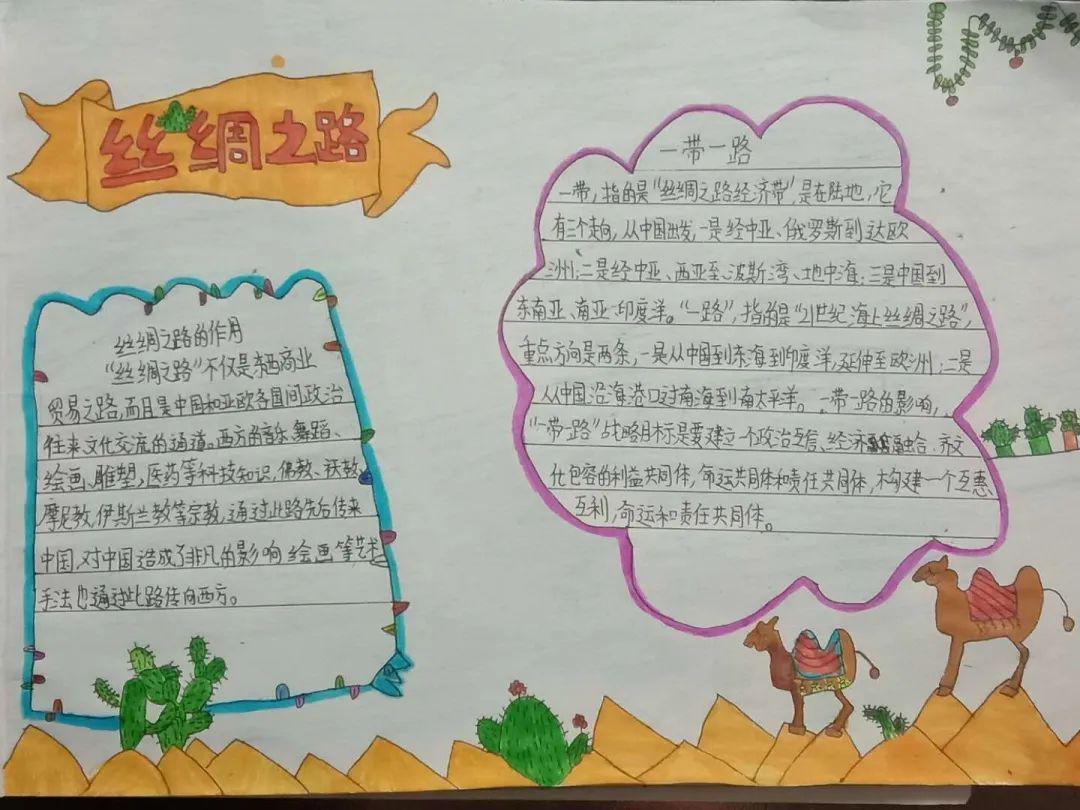 丝绸之路
丝绸之路的作用
“丝绸之路”不仅是东西商业
贸易之路,而且是中国和亚欧各国间政治
往来文化交流的通道。西方的音乐、舞蹈、
绘画、雕塑,医药等科技知识,佛教、袄教
摩尼教,伊斯兰教等宗教,通过此路先后传来
中国,对中国造成了非凡的影响绘画等艺术
手法也通过此路传向西方。
一带一路
一带,指的是“丝绸之路经济带”,是在陆地,它
有三个走向,从中国出发,一是经中亚、俄罗斯到达欧
洲;二是经中亚、西亚至波斯湾、地中海;三是中国到
东南亚、南亚、印度洋。“一路”,指的是“21世纪海上丝绸之路”,
重点方向是两条,一是从中国到东海到印度洋,延伸至欧洲;二是
从中国沿海港口过南海到南太平洋。一带一路的影响,
“一带一路”战略目标是要建立一个政治互信、经济融合、
化包容的利益共同体,命运共同体和责任共同体,构建一个互惠
互利,命运和责任共同体。